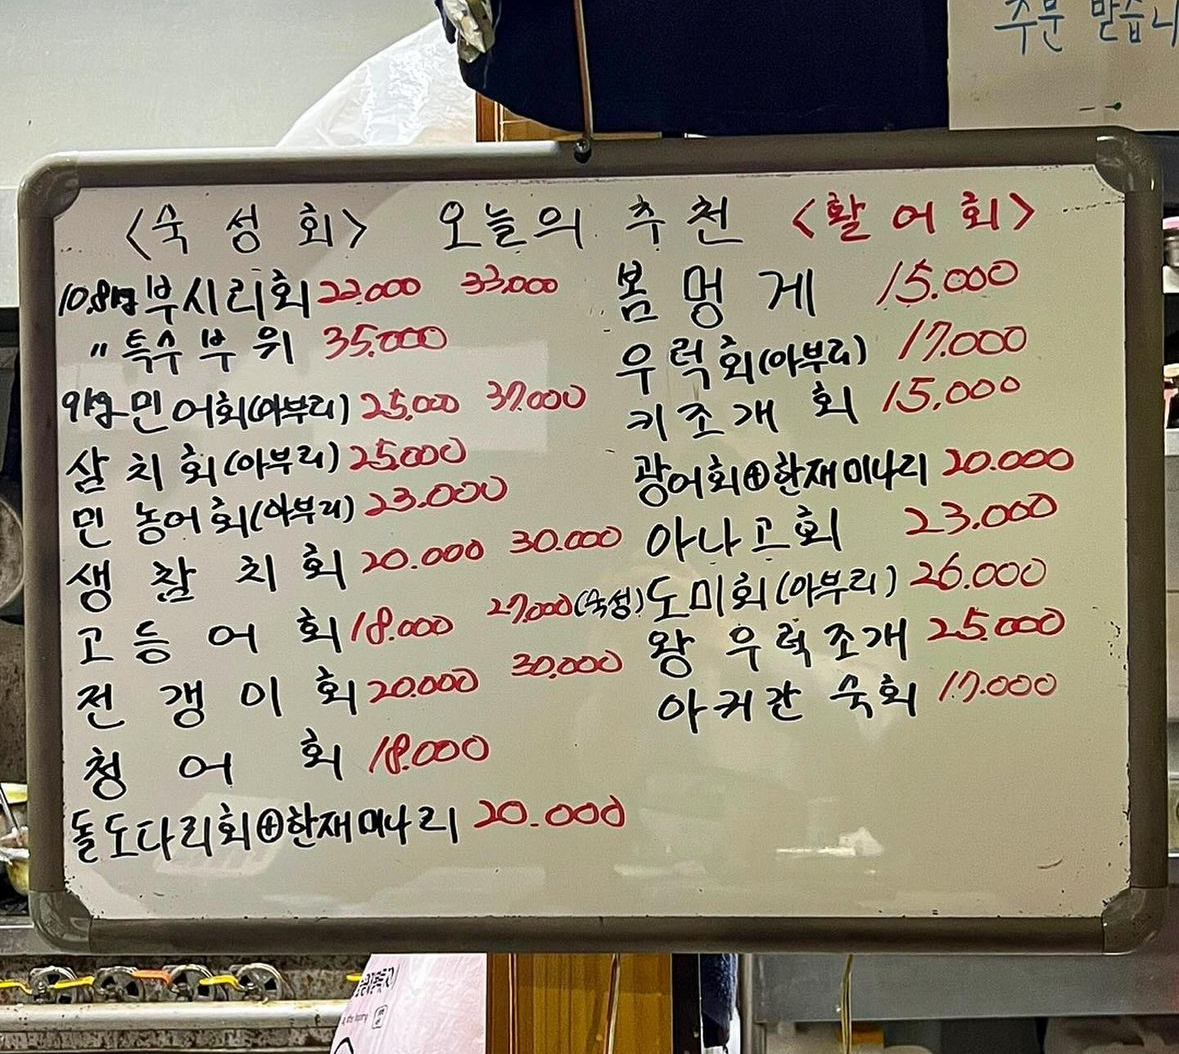 주문 받습니
<숙성회> 오늘의 추천 <활어회>
10.8kg 부시리회 22.000 33.000
〃 특수부위 35.000
9kg 민어회(아부리) 25.000 37.000
삼치회(아부리) 25.000
민농어회(아부리) 23.000
생참치회 20.000 30.000
고등어회 18.000 27.000
전갱이회 20.000 30.000
청어회 18.000
돌도다리회⊕한재미나리 20.000
봄멍게 15.000
우럭회(아부리) 17.000
키조개회 15.000
광어회⊕한재미나리 20.000
아나고회 23.000
(숙성)도미회(아부리) 26.000
왕우럭조개 25.000
아커칸숙회 17.000